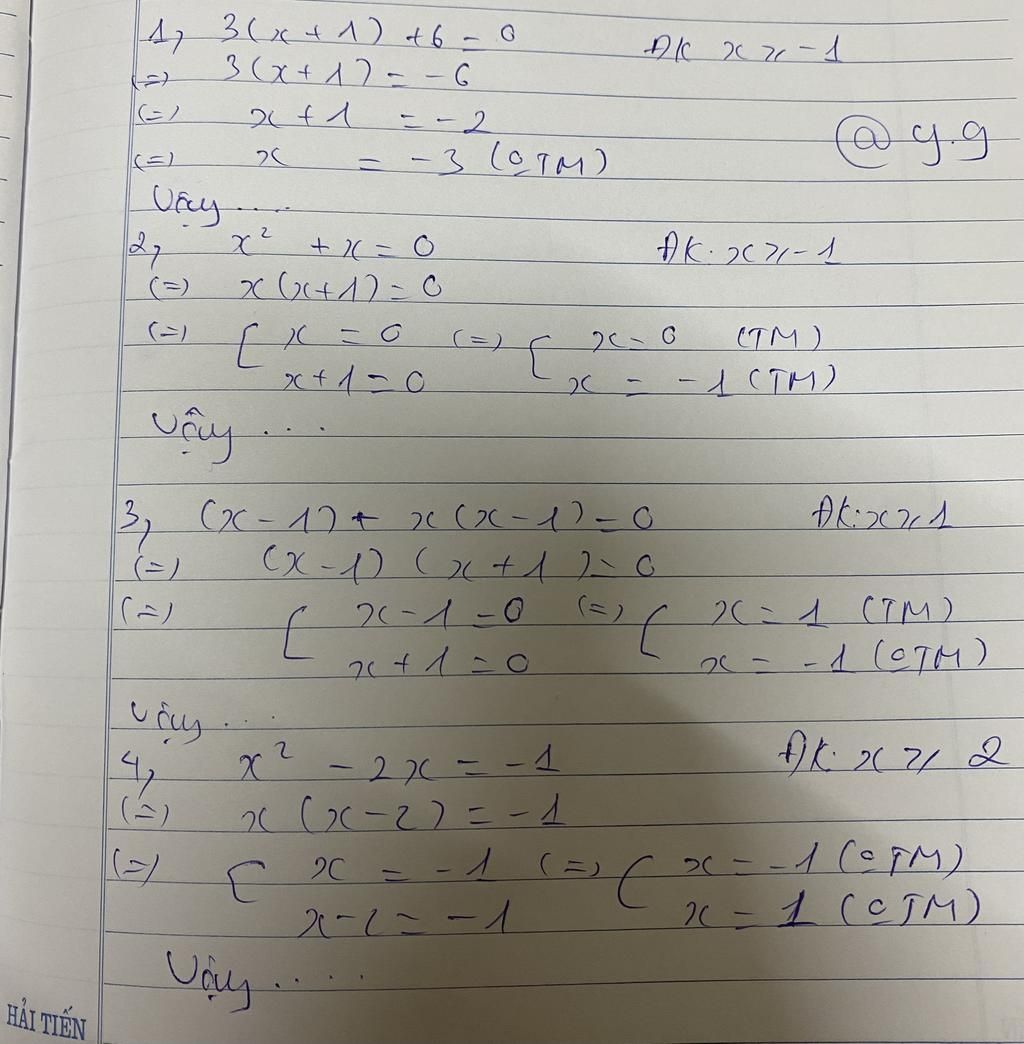 1, 3(x+1) +6 = 0 ĐK x ≥ -1
(=) 3(x+1) = -6
(=) x+1 = -2
(=) x = -3 (OTM)
@ y.g
Vậy ....
2, x² + x = 0 ĐK: x ≥ -1
(=) x(x+1) = 0
(=) [ x = 0 (=) [ x = 0 (TM)
x+1 = 0 x = -1 (TM)
Vậy ....
3, (x-1) + x(x-1) = 0 ĐK: x ≥ 1
(=) (x-1) (x+1) = 0
(=) [ x-1 = 0 (=) [ x = 1 (TM)
x+1 = 0 x = -1 (OTM)
Vậy ...
4, x² - 2x = -1 ĐK: x ≥ 2
(=) x (x-2) = -1
(=) [ x = -1 (=) [ x = -1 (OTM)
x-2 = -1 x = 1 (OTM)
Vậy .....
HẢI TIẾN